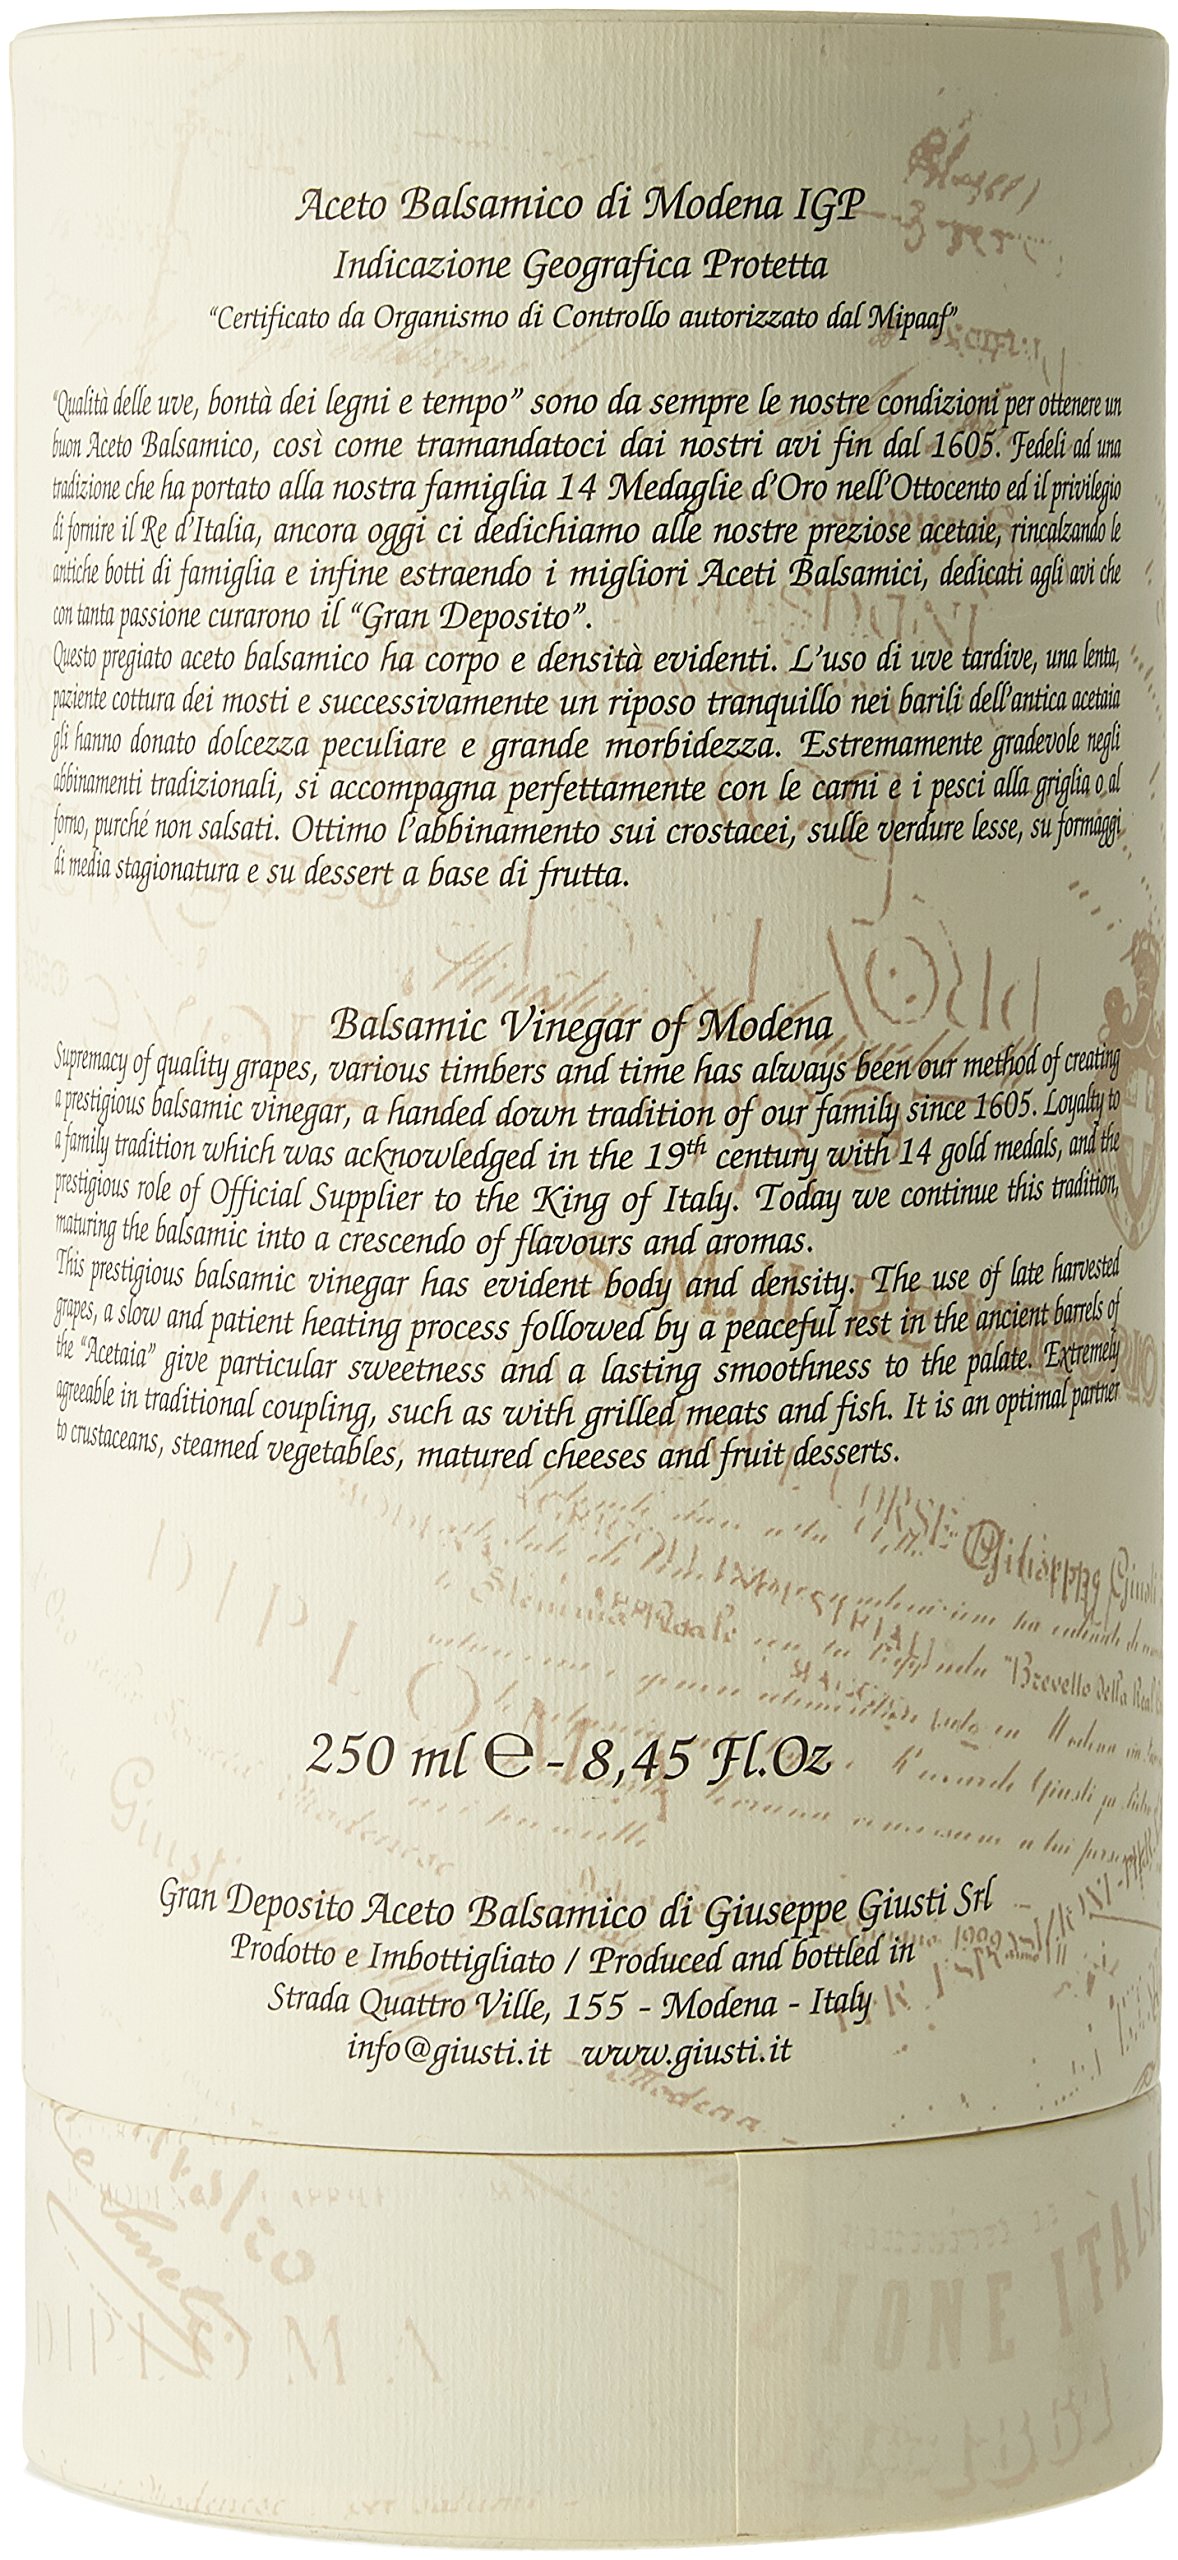 Aceto Balsamico di Modena IGP
Indicazione Geografica Protetta
"Certificato da Organismo di Controllo autorizzato dal Mipaaf"
"Qualità delle uve, bontà dei legni e tempo" sono da sempre le nostre condizioni per ottenere un
buon Aceto Balsamico, così come tramandatoci dai nostri avi fin dal 1605. Fedeli ad una
tradizione che ha portato alla nostra famiglia 14 Medaglie d'Oro nell'Ottocento ed il privilegio
di fornire il Re d'Italia, ancora oggi ci dedichiamo alle nostre preziose acetaie, rincalzando le
antiche botti di famiglia e infine estraendo i migliori Aceti Balsamici, dedicati agli avi che
con tanta passione curarono il "Gran Deposito".
Questo pregiato aceto balsamico ha corpo e densità evidenti. L'uso di uve tardive, una lenta,
paziente cottura dei mosti e successivamente un riposo tranquillo nei barili dell'antica acetaia
gli hanno donato dolcezza peculiare e grande morbidezza. Estremamente gradevole negli
abbinamenti tradizionali, si accompagna perfettamente con le carni e i pesci alla griglia o al
forno, purché non salsati. Ottimo l'abbinamento sui crostacei, sulle verdure lesse, su formaggi
di media stagionatura e su dessert a base di frutta.
Balsamic Vinegar of Modena
Supremacy of quality grapes, various timbers and time has always been our method of creating
a prestigious balsamic vinegar, a handed down tradition of our family since 1605. Loyalty to
a family tradition which was acknowledged in the 19th century with 14 gold medals, and the
prestigious role of Official Supplier to the King of Italy. Today we continue this tradition,
maturing the balsamic into a crescendo of flavours and aromas.
This prestigious balsamic vinegar has evident body and density. The use of late harvested
grapes, a slow and patient heating process followed by a peaceful rest in the ancient barrels of
the "Acetaia" give particular sweetness and a lasting smoothness to the palate. Extremely
agreeable in traditional coupling, such as with grilled meats and fish. It is an optimal partner
to crustaceans, steamed vegetables, matured cheeses and fruit desserts.
250 ml e - 8,45 Fl.Oz
Gran Deposito Aceto Balsamico di Giuseppe Giusti Srl
Prodotto e Imbottigliato / Produced and bottled in
Strada Quattro Ville, 155 - Modena - Italy
info@giusti.it www.giusti.it